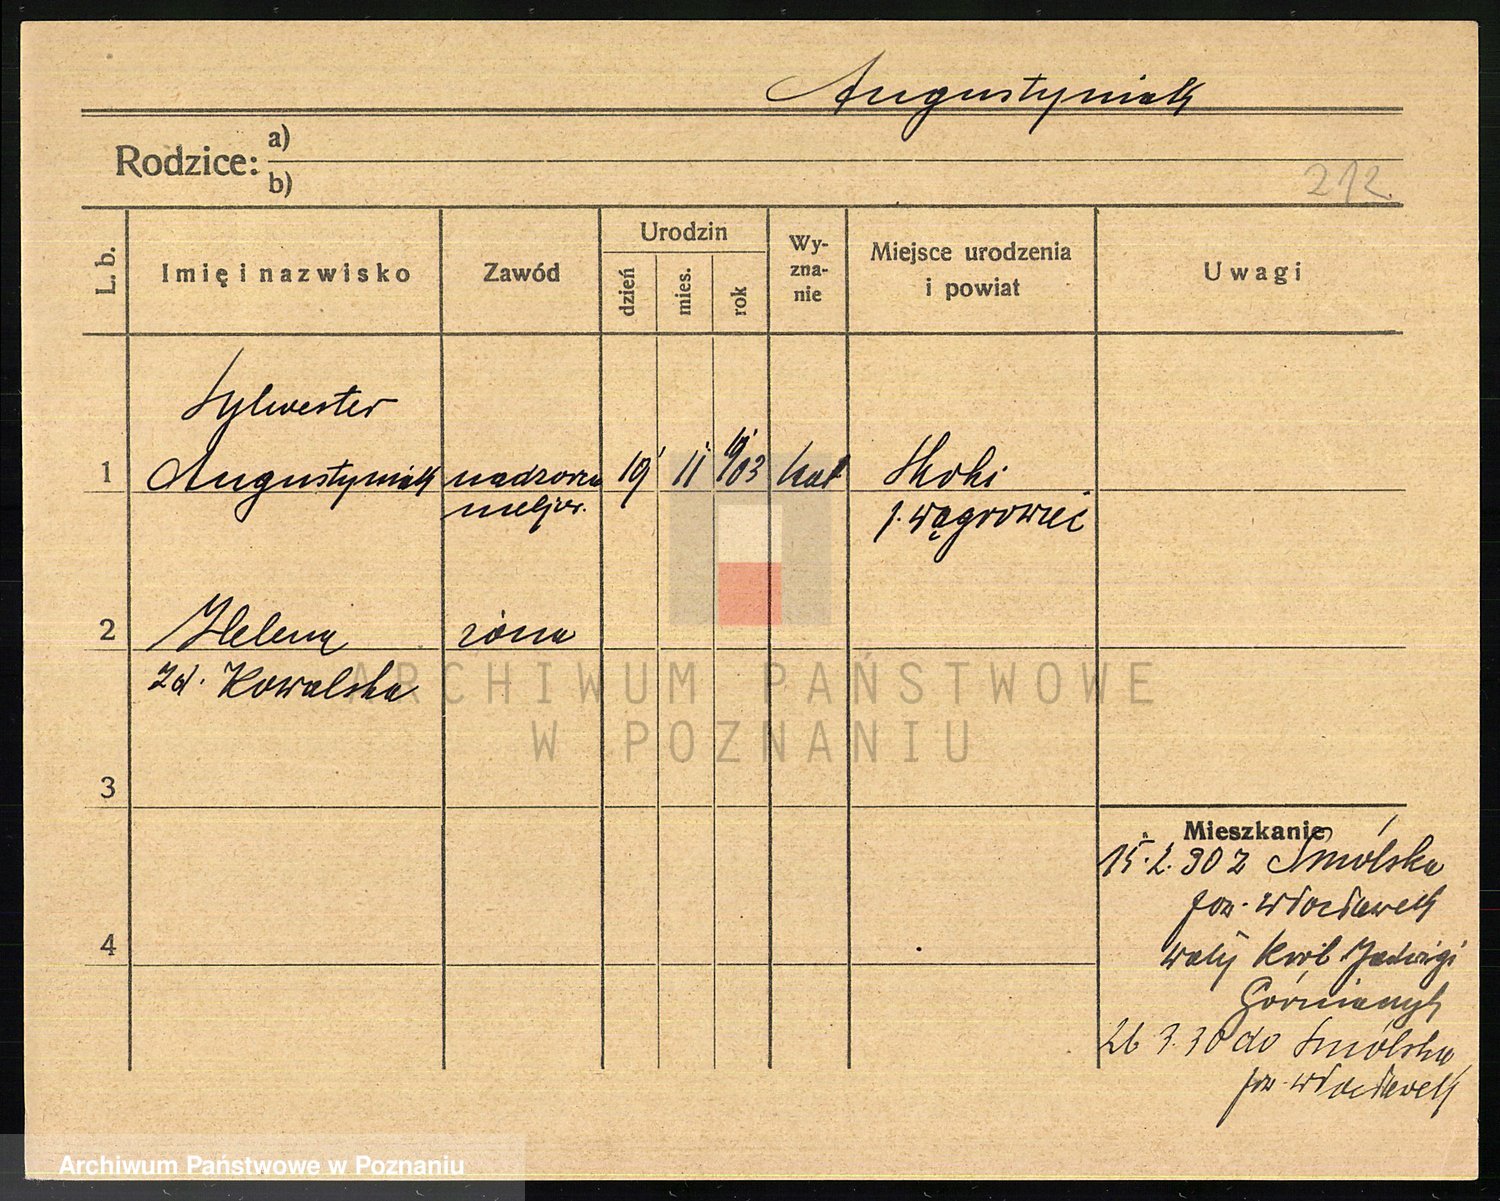 Augustyniak
Rodzice:
a)
b)
212.
L. b.
Imię i nazwisko
Zawód
Urodzin
dzień
mies.
rok
Wy-
zna-
nie
Miejsce urodzenia
i powiat
Uwagi
Sylwester
1 Augustyniak nadzorca 19 11 1903 kat Skoki
meljor. p. Wągrowiec
2 Helena żona
zd. Kowalska
3
4
Mieszkanie
15.2.30 z Smólska
pow. Włocławek
Wały Król Jadwigi
26 3.30 do Smólska
pow. Włocławek
ARCHIWUM PAŃSTWOWE
W POZNANIU
Archiwum Państwowe w Poznaniu